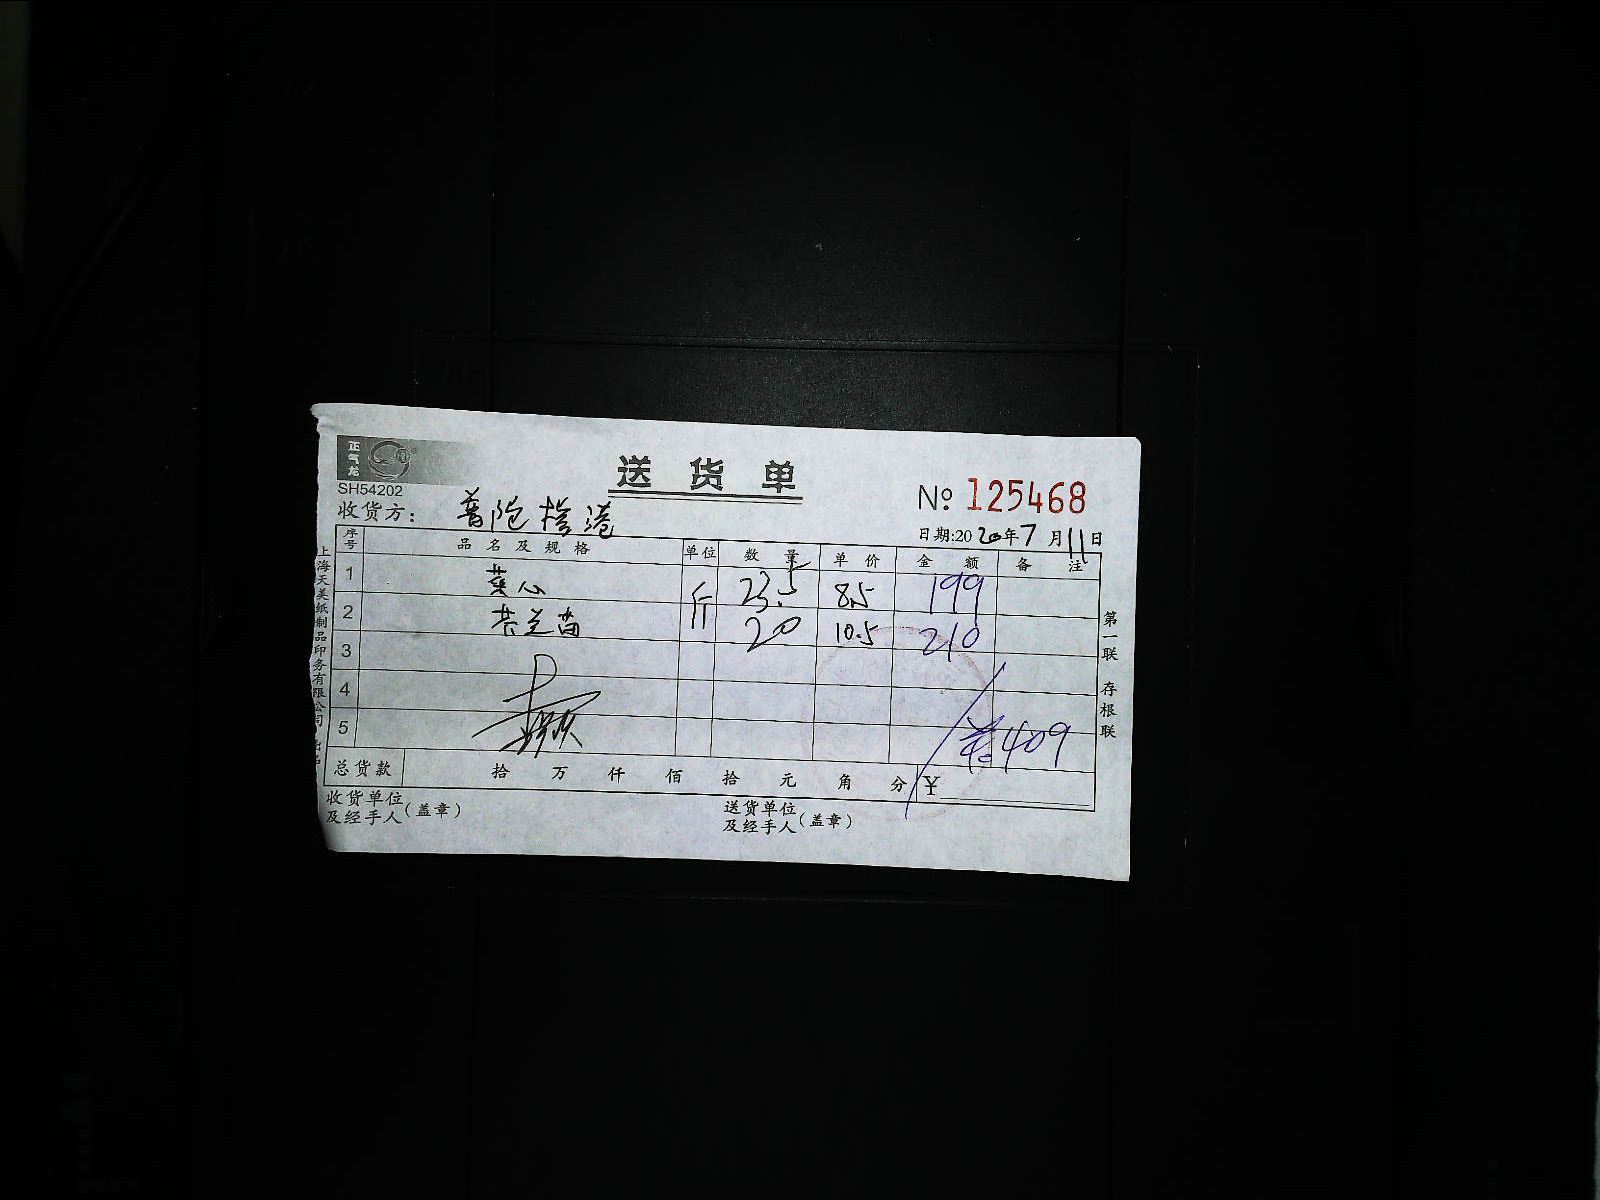 正气龙
SH54202
送货单
№ 125468
收货方: 普陀 港
日期:2020年7月11日
序号 品名及规格 单位 数量 单价 金额 备注
1 菜心 斤 23.5 8.5 199
2 芥兰苗 斤 20 10.5 210
3
4
5
¥409
总货款 拾 万 仟 佰 拾 元 角 分 ¥
收货单位及经手人(盖章)
送货单位及经手人(盖章)
上海天美纸制品印务有限公司
第一联 存根联